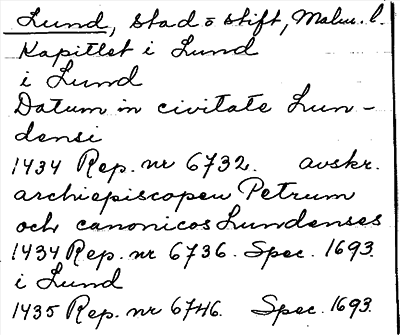 Lund, stad o stift, Malm. l.
Kapitlet i Lund
i Lund
Datum in civitate Lun-
densi
1434 Rep. nr 6732. avskr.
archiepiscopen Petrum
och canonicos Lundenses
1434 Rep. nr 6736. Spec. 1693.
i Lund
1435 Rep. nr 6746. Spec. 1693.